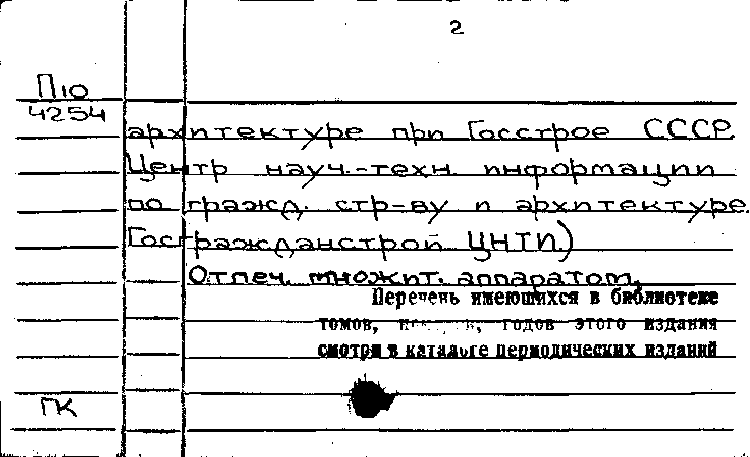 2
П10
4254
архитектуре при Госстрое СССР.
Центр науч.-техн. информации
по гражд. стр-ву и архитектуре
Госгражданстрой ЦНТИ)
Отпеч. множит. аппаратом.
Перечень имеющихся в библиотеке
томов, годов этого издания
смотри в каталоге периодических изданий
ГК